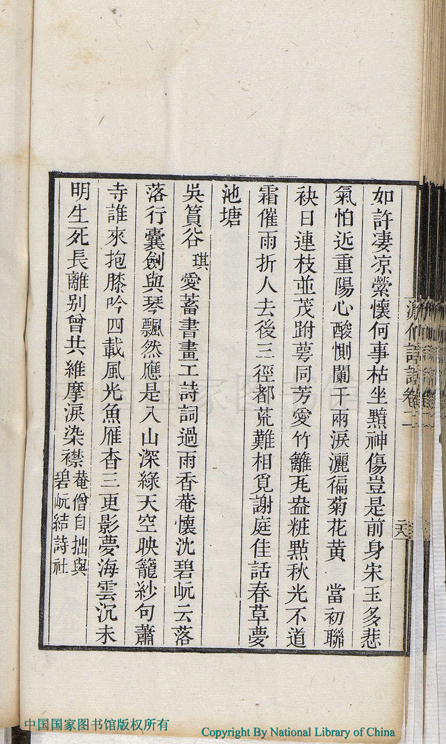 如許凄凉縈懷何事枯坐黯神傷豈是前身宋玉多悲
氣怕近重陽心酸惻闌干兩淚灑徧菊花黃　當初聯
袂日連枝並茂跗萼同芳愛竹籬瓦盎粧點秋光不道
霜催雨折人去後三徑都荒難相覓謝庭佳話春草夢
池塘
吳篔谷琪愛蓄書畫工詩詞過雨香菴懷沈碧岏云落
落行囊劍與琴飄然應是入山深綠天空映籠紗句蕭
寺誰來抱膝吟四載風光魚雁杳三更影夢海雲沉未
明生死長離别曾共維摩淚染襟菴僧自拙與
碧岏結詩社
詩話卷一
中国国家图书馆版权所有
Copyright By National Library of China